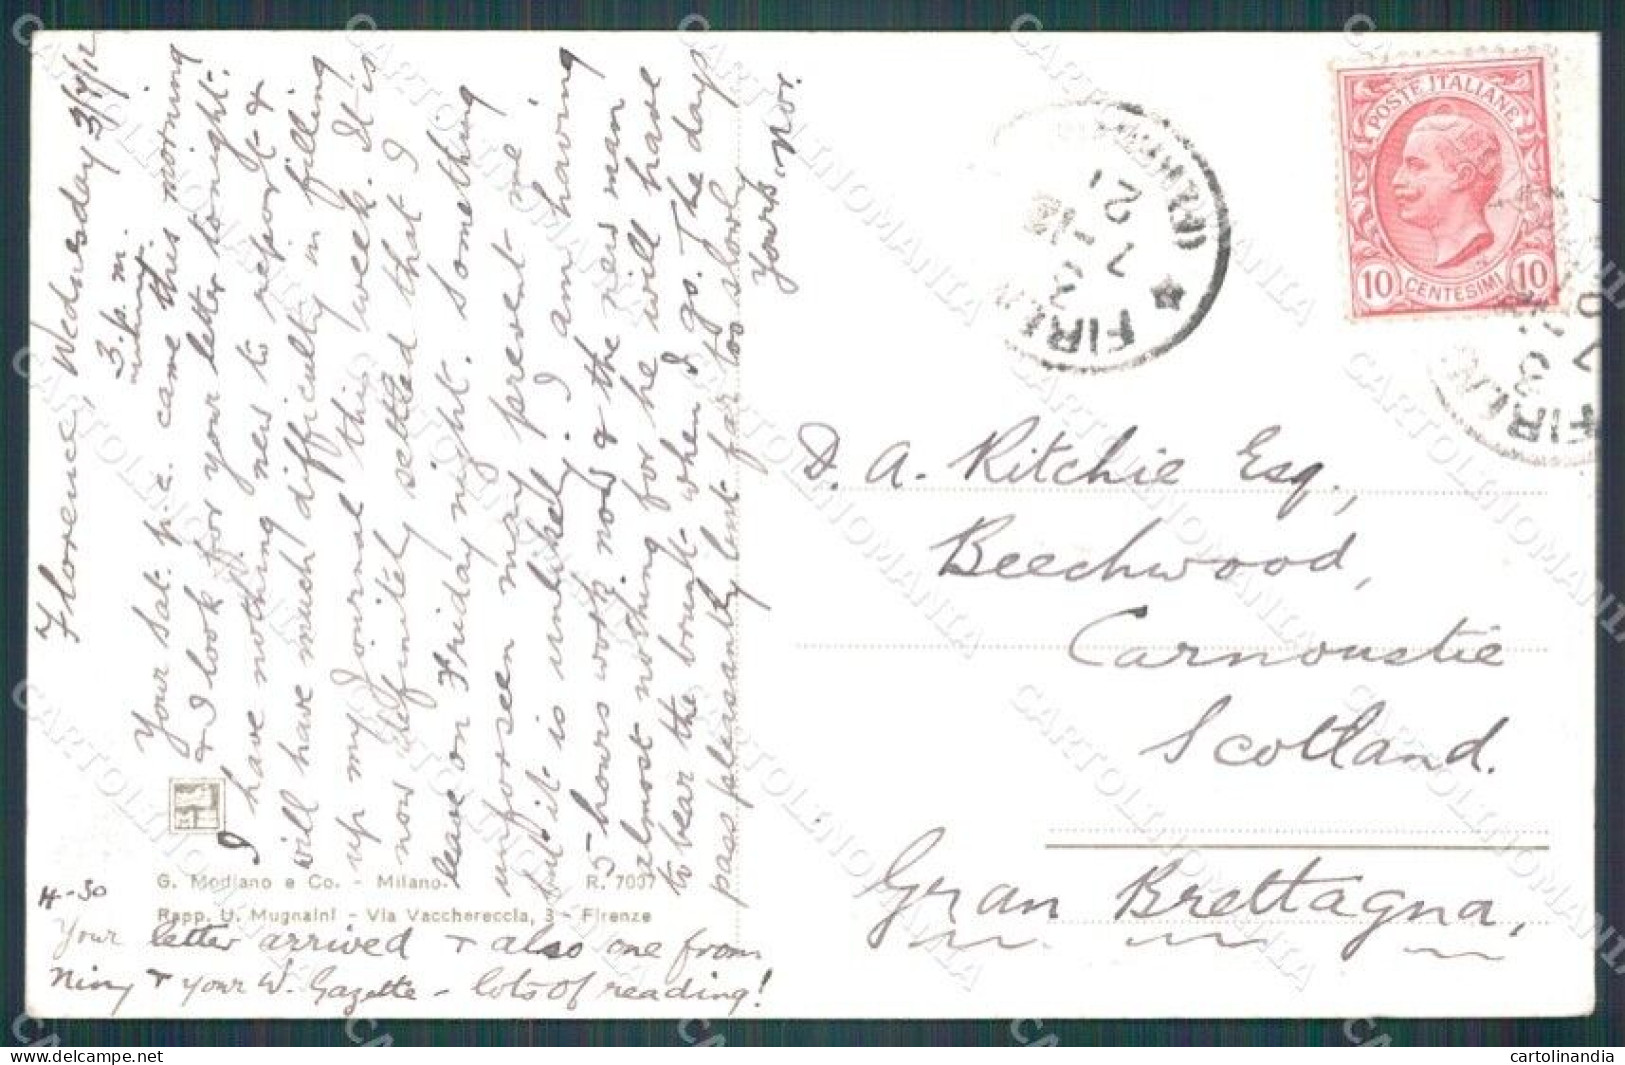 Florence, Wednesday 3/7/12
3. p.m.
Your Sat. p.c. came this morning
& I look for your letter tonight.
I have nothing new to report &
will have much difficulty in filling
up my journal this week. It is
now definitely settled that I
leave on Friday night. Something
unforseen may prevent me
but it is unlikely. I am having
5 hours work now & the new man
almost nothing for he will have
to bear the brunt when I go. The days
pass pleasantly but far too slowly
Yours, Nor.
G. Modiano e Co. - Milano. R. 7007
Rapp. U. Mugnaini - Via Vacchereccia, 3 - Firenze
4-50
Your letter arrived & also one from
Niny & your W. Gazette - lots of reading!
POSTE ITALIANE
10 CENTESIMI 10
D. A. Ritchie Esq.,
Beechwood,
Carnoustie
Scotland.
Gran Brettagna,
CARTOLINOMANIA
cartolinandia